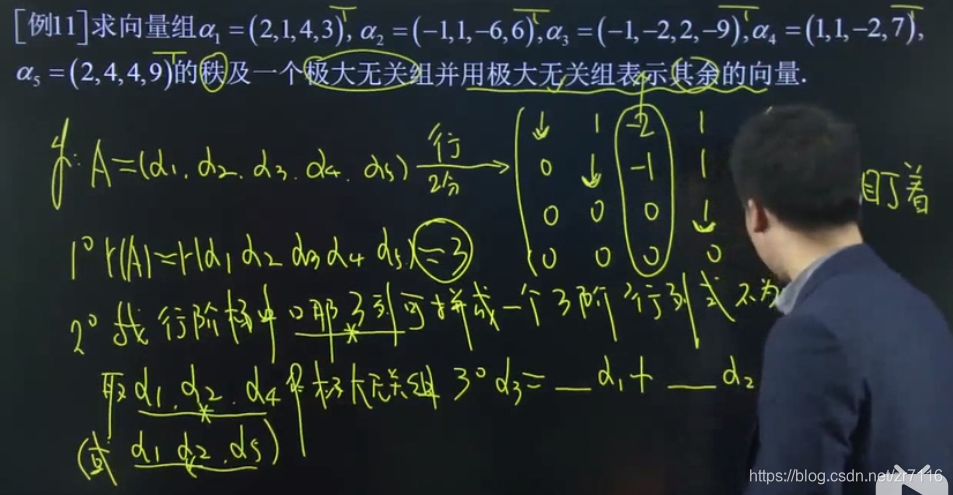 [例11]求向量组α₁=(2,1,4,3)ᵀ, α₂=(−1,1,−6,6)ᵀ,α₃=(−1,−2,2,−9)ᵀ,α₄=(1,1,−2,7)ᵀ,
α₅=(2,4,4,9)ᵀ的秩及一个极大无关组并用极大无关组表示其余的向量.
A=(α₁.α₂.α₃.α₄.α₅) 行
1 1 −2 1
0 1 −1 1
0 0 0 1
0 0 0 0
盯着
1° r(A)=r(α₁ α₂ α₃ α₄ α₅)=3
2° 找行阶梯中 哪3列可拼成一个3阶行列式不为
取α₁.α₂.α₄ 极大无关组 3° α₃=__α₁+__α₂
(或 α₁ α₂.α₅)
https://blog.csdn.net/zr7116